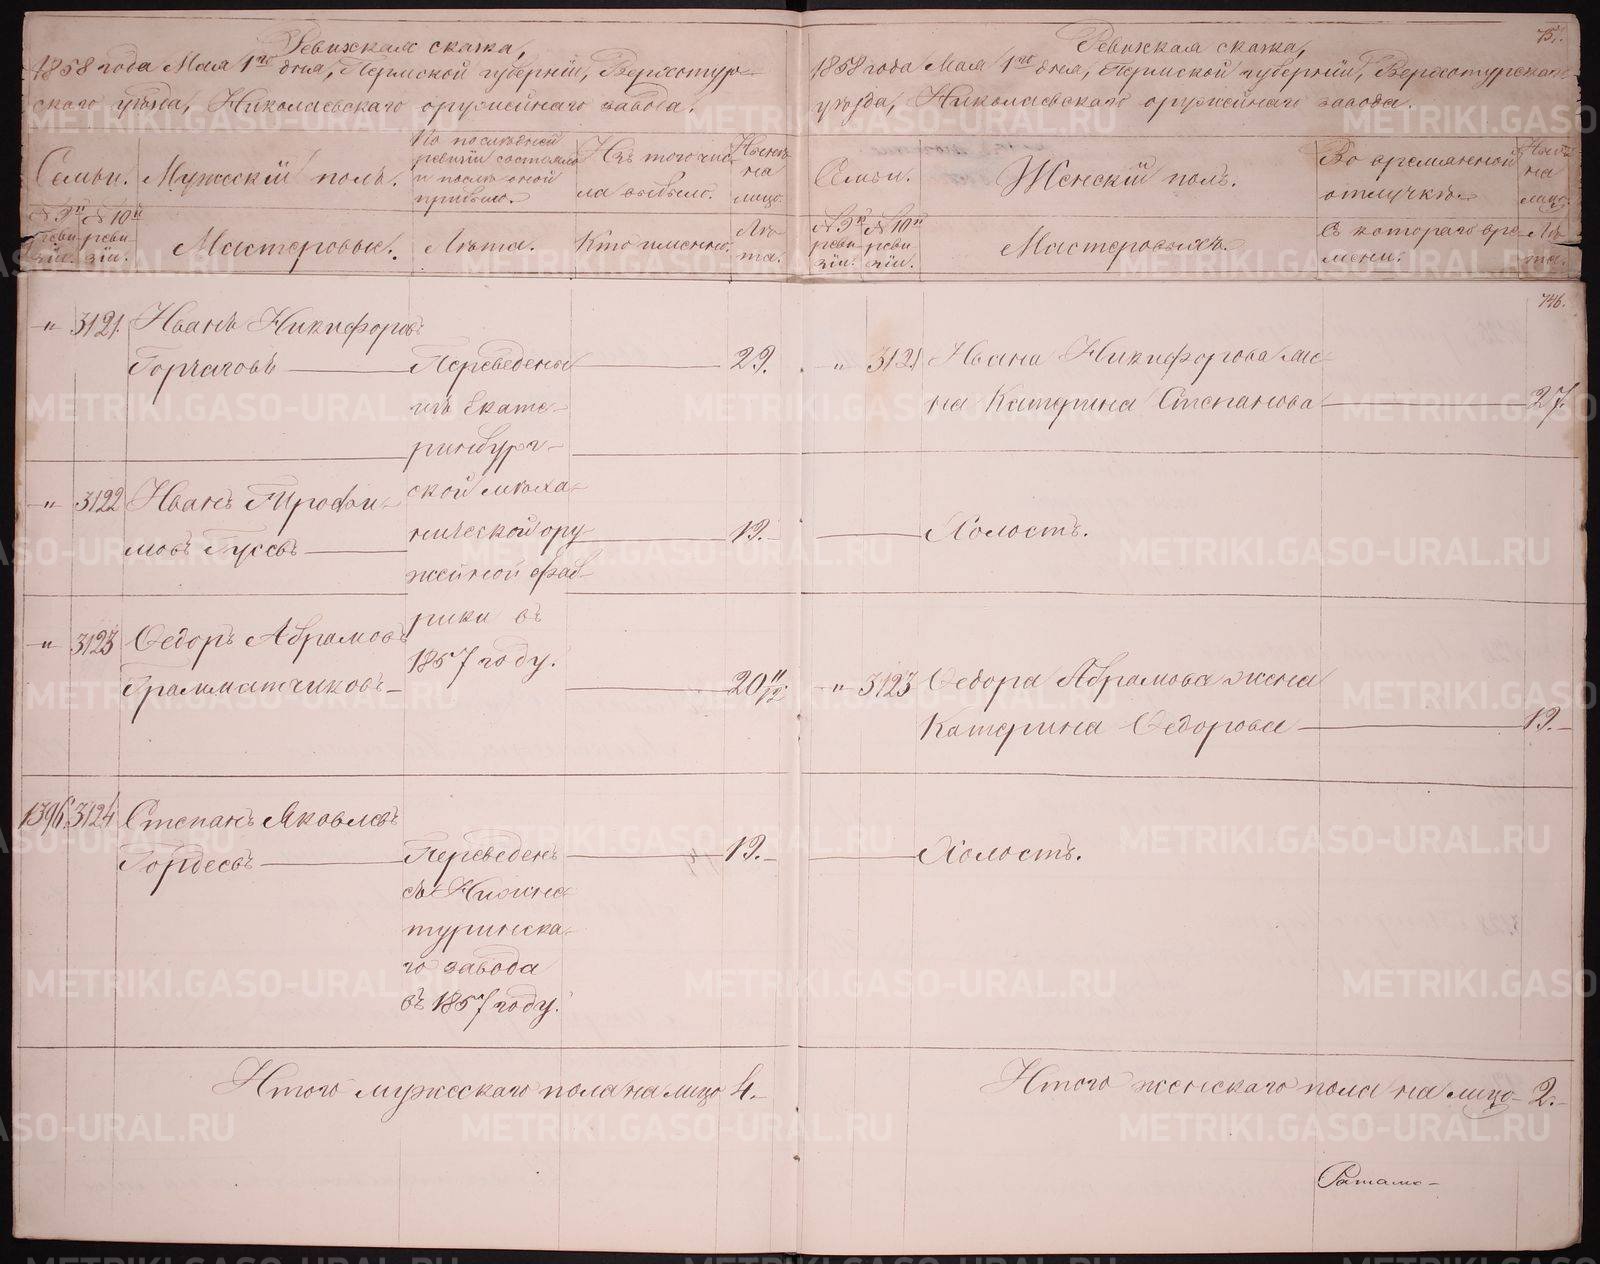 Ревижская сказка,
1858 года Мая 1го дня, Пермской губернiи, Верхотур-
скаго уѣзда, Николаевскаго оружейнаго завода.
Семьи.
Мужескiй полъ.
По послѣдней
ревизiи состояло
и послѣ оной
прибыло.
Изъ того чис-
ла выбыло.
на
лицо.
№ 9й
реви-
зiи.
№ 10й
реви-
зiи.
Мастеровые.
Лѣта.
Кто именно.
Лѣ-
та.
„ 3121. Иванъ Никифоровъ
Горчаговъ Переведены 29.
изъ Екате-
ринбург-
ской меха-
нической ору-
жейной фаб-
рики въ
1857 году.
„ 3122 Иванъ Трофи-
мовъ Гусевъ 19.
„ 3123 Ѳедоръ Абрамовъ
Грамматчиковъ 20 11/12.
1396. 3124 Степанъ Яковлевъ
Гордеевъ Переведенъ 19.
съ Нижне-
туринска-
го завода
въ 1857 году.
Итого мужескаго пола на лицо 4.
751.
Ревижская сказка,
1858 года Мая 1го дня, Пермской губернiи, Верхотурскаго
уѣзда, Николаевскаго оружейнаго завода.
Семьи.
Женскiй полъ.
Во времянной
отлучкѣ.
на
лицо.
№ 9й
реви-
зiи.
№ 10й
реви-
зiи.
Мастеровыхъ.
Съ котораго вре-
мени.
Лѣ-
та.
746.
„ 3121 Ивана Никифорова же-
на Катерина Степанова 27.
Холостъ.
„ 3123 Ѳедора Абрамова жена
Катерина Ѳедорова 19.
Холостъ.
Итого женскаго пола на лицо 2.
METRIKI.GASO-URAL.RU